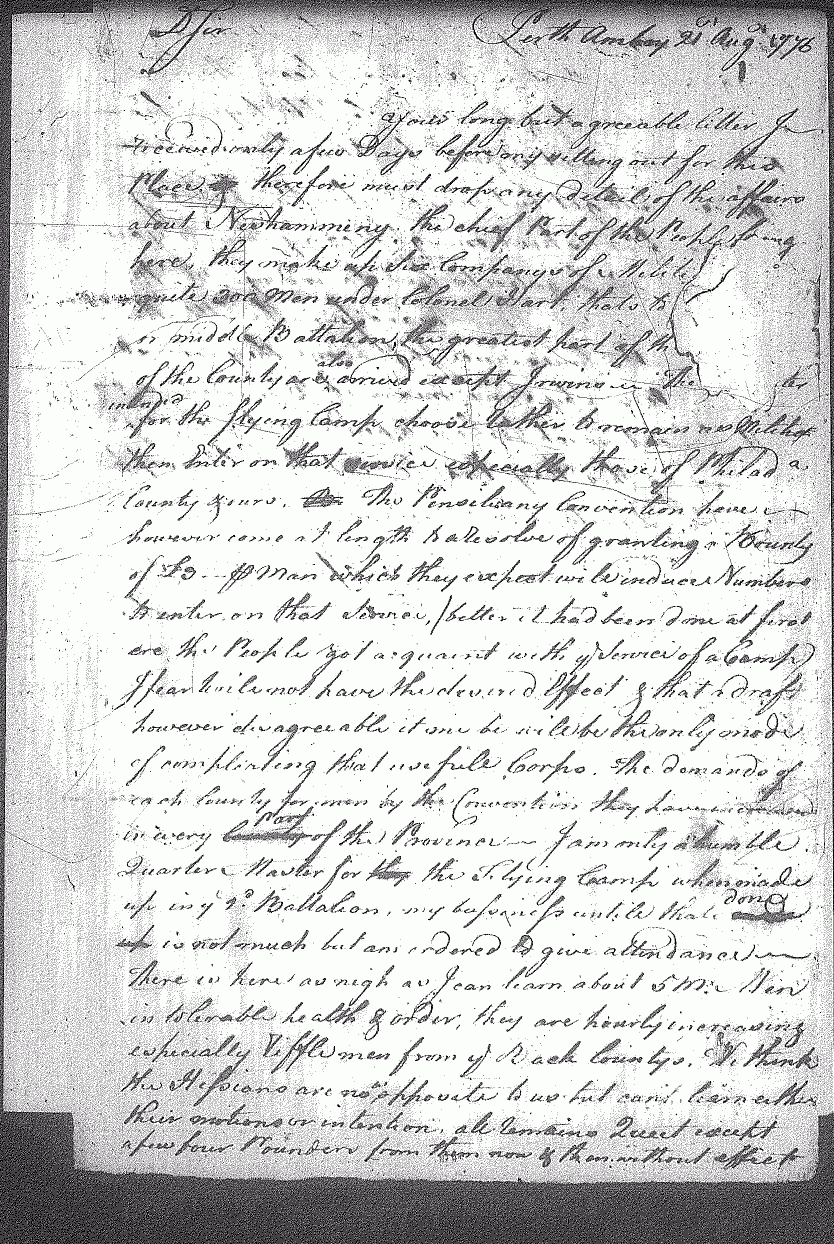 D Sir Perth Amboy 21st Augt 1776
Yours long but agreeable letter I
received only a few Days before my setting out for this
Place. therefore must drop any detail of the affairs
about Neshamminy. the chief Part of the People being
here, they make up Six Companys of Militi
quite 300 Men under Colonel Hart. thats th
or middle Battalion, the greatest part of th
of the County are also arrived except Irwins The
intend'd for the flying Camp choose rather to remain as Militia
then Enter on that service especially those of Philad a
County & ours. The Pensilvany Convention have
however come at length to a resolve of granting a Bounty
of £3 -- ⅌ Man which they expect will induce Numbers
to enter on that Service, /better it had been done at first
ere the People got acquaint with ye Service of a Camp)
I fear will not have the desired Effect & that a draft
however disagreeable it me be will be the only mode
of compleating that usefull Corps. The demands of
each County for men by the Convention they have increased
in every County part of the Province — I am only a humble
Quarter Master for they the Flying Camp when made
up in ye 2d Battalion, my bussiness untile that done
up is not much but am ordered to give attendance —
There is here as nigh as I can learn about 5 M: Men
in tolerable health & order, they are hourly increasing
especially Riffle men from ye Back Countys. We think
the Hessians are now opposite to us but cant learn either
their motions or intention. all remains Quiet except
a few four Pounders from them now & then without effect